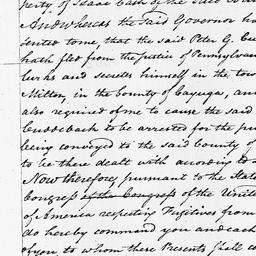 perty, of Isaac
And whereas the said Governor ha
sented to me, that the said Peter G. Cu
hath fled from the justice of Pennsylvan
lurks and secretes himself in the tow
Milton, in the county of Cayuga, an
also required of me to cause the said
Cuddeback to be arrested for the pu
being conveyed to the said county of
to be there dealt with according to
Now therefore, pursuant to the Stat
Congress of the Congress of the Unite
of America respecting Fugitives from
do hereby command you and each
of you to whom these Presents shall co